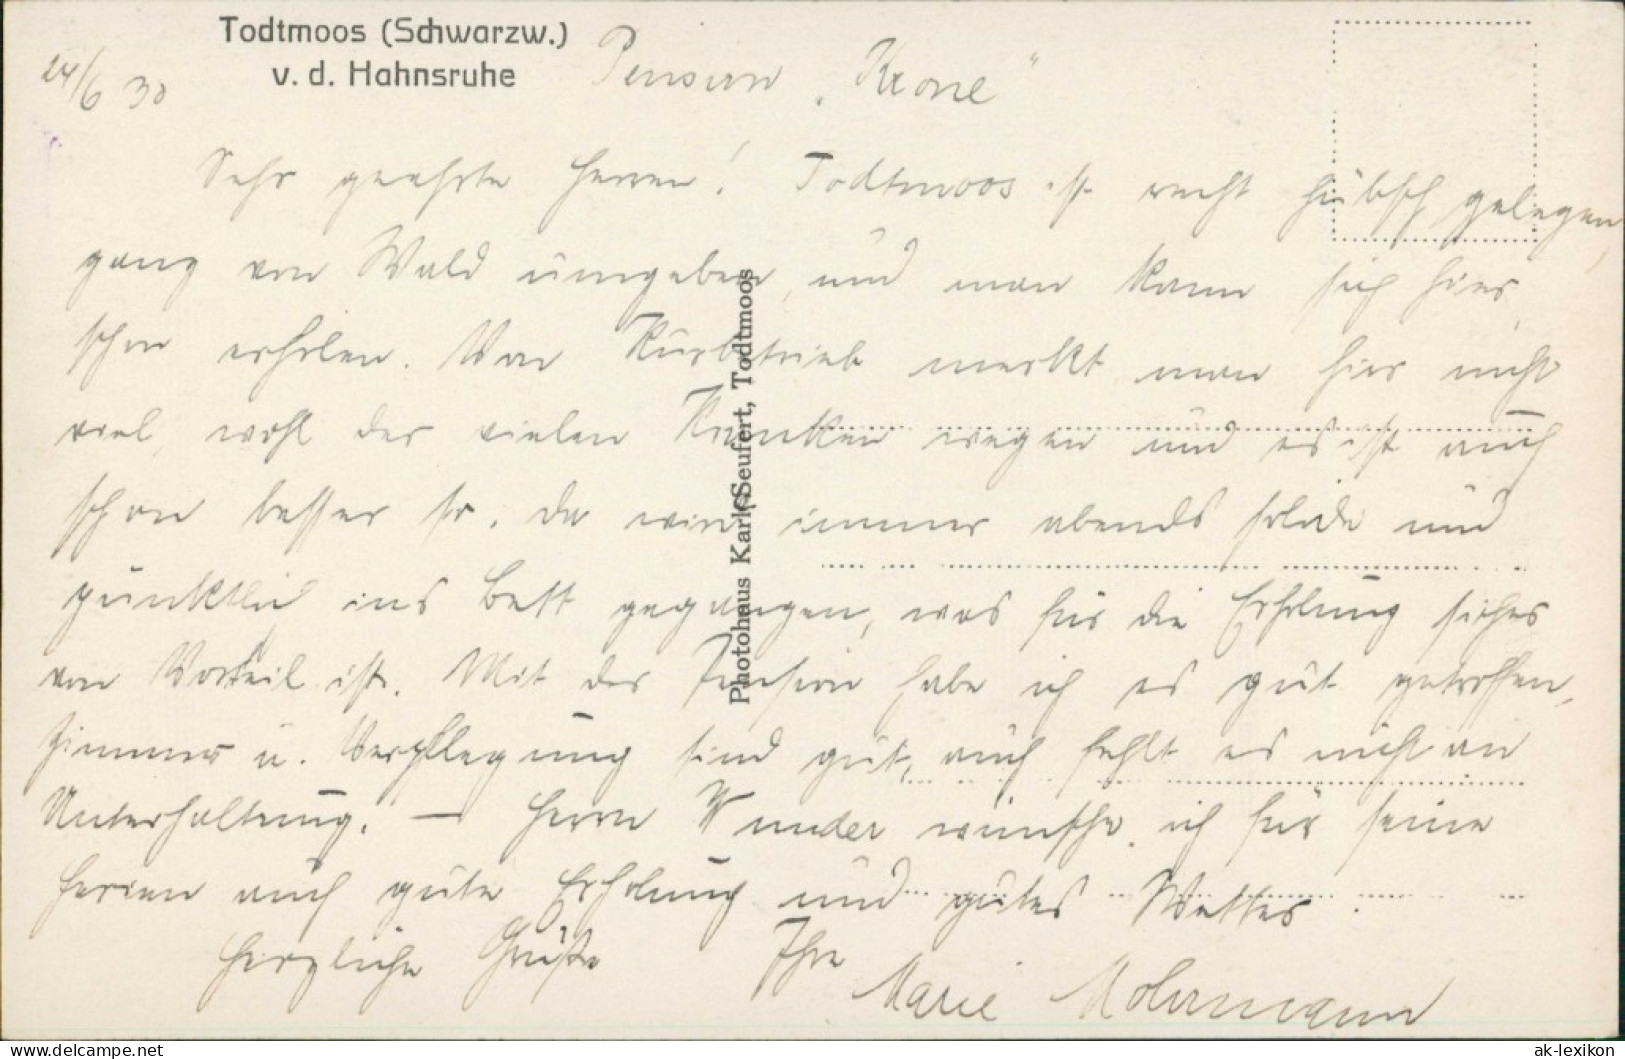 Todtmoos (Schwarzw.)
v. d. Hahnsruhe
24/6 30
Pension „Krone"
Sehr geehrte Herren! Todtmoos ist recht hübsch gelegen,
ganz von Wald umgeben, und man kann sich hier
schön erholen. Von Kurbetrieb merkt man hier nicht
viel, wohl der vielen Kranken wegen und es ist auch
schon besser so, da wird immer abends solide und
pünktlich ins Bett gegangen, was für die Erholung sicher
von Vorteil ist. Mit der Pension habe ich es gut getroffen,
Zimmer u. Verpflegung sind gut, auch fehlt es nicht an
Unterhaltung. — Herrn Wunder wünsche ich für seine
Ferien auch gute Erholung und gutes Wetter.
Herzliche Grüße Ihre
Marie
Photohaus Karl Seufert, Todtmoos
www.delcampe.net
philatelie
ak-lexikon